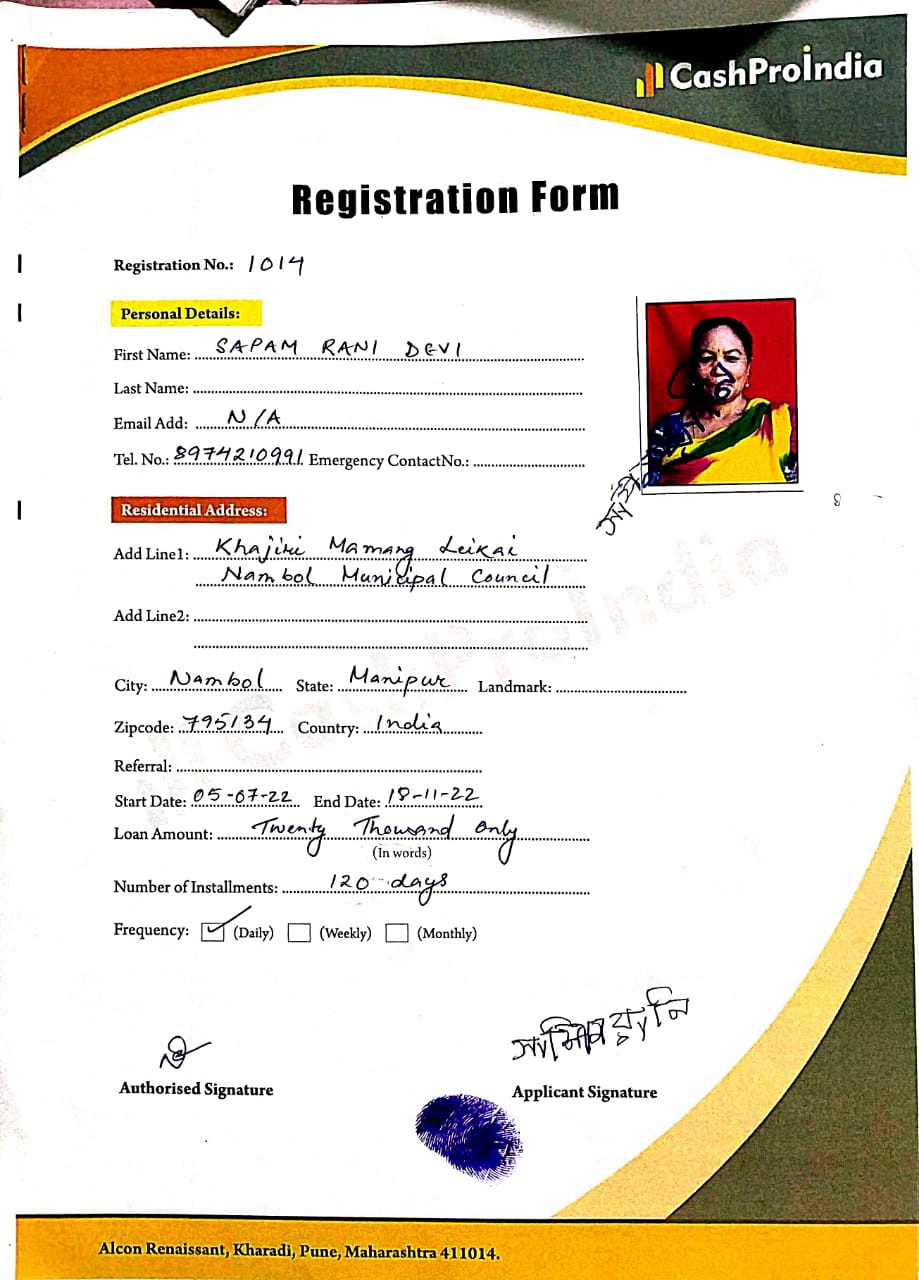 CashProIndia
Registration Form
Registration No.: 1014
Personal Details:
First Name: SAPAM RANI DEVI
Last Name:
Email Add: N/A
Tel. No.: 8974210991 Emergency ContactNo.:
Residential Address:
Add Line1: Khajiri Mamang Leikai
Nambol Municipal Council
Add Line2:
City: Nambol State: Manipur Landmark:
Zipcode: 795134 Country: India
Referral:
Start Date: 05-07-22 End Date: 18-11-22
Loan Amount: Twenty Thousand Only
(In words)
Number of Installments: 120 days
Frequency: (Daily) (Weekly) (Monthly)
Authorised Signature
Applicant Signature
Alcon Renaissant, Kharadi, Pune, Maharashtra 411014.